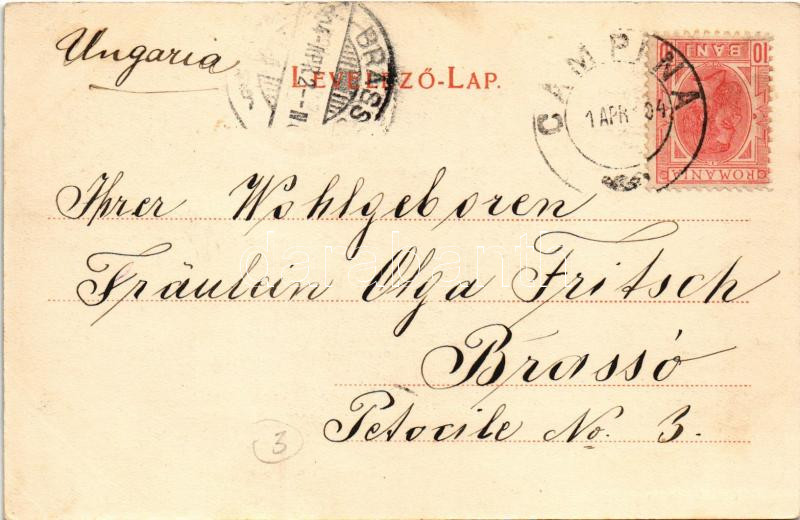 Ungaria
LEVELEZŐ-LAP.
BRASS
904 APR 2 - N
CAMPINA
1 APR 04
10 BANI 10
ROMANIA
Ihrer Wohlgeboren
Fräulein Olga Fritsch
Brassó
Petocile No. 3.
3
darabanth